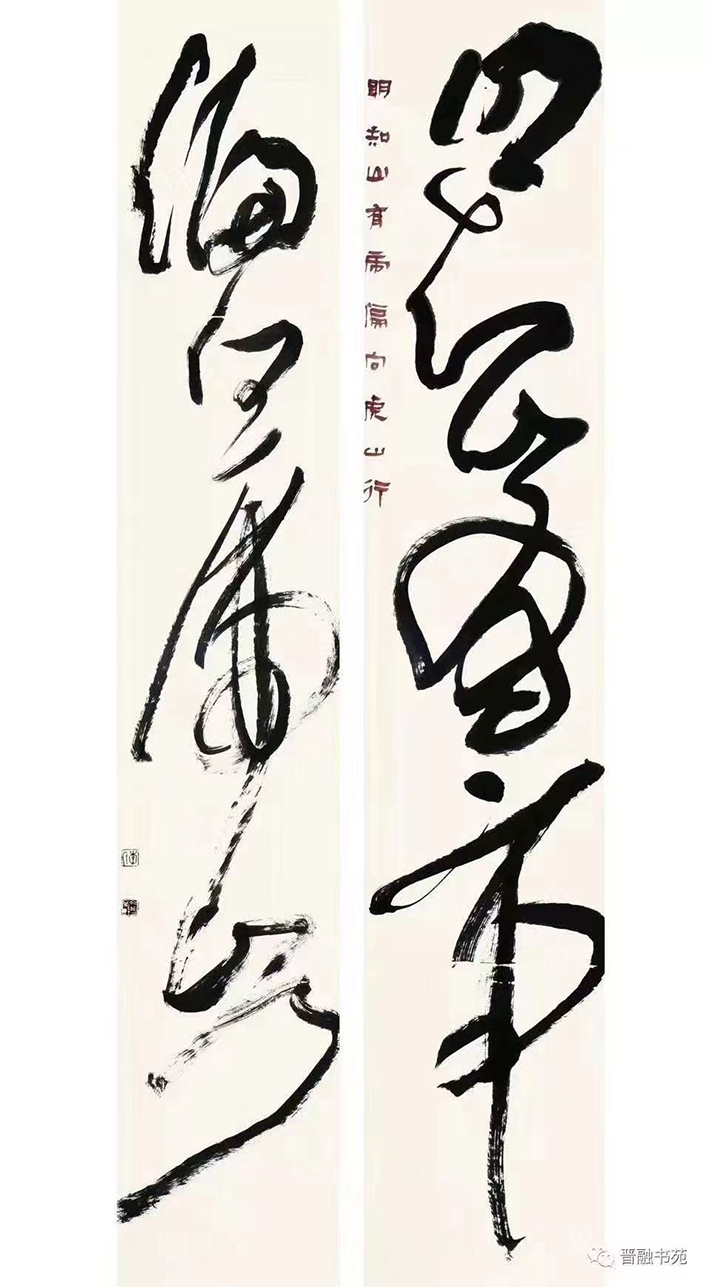 明知山有虎
明知山有虎偏向虎山行
偏向虎山行
晋融书苑